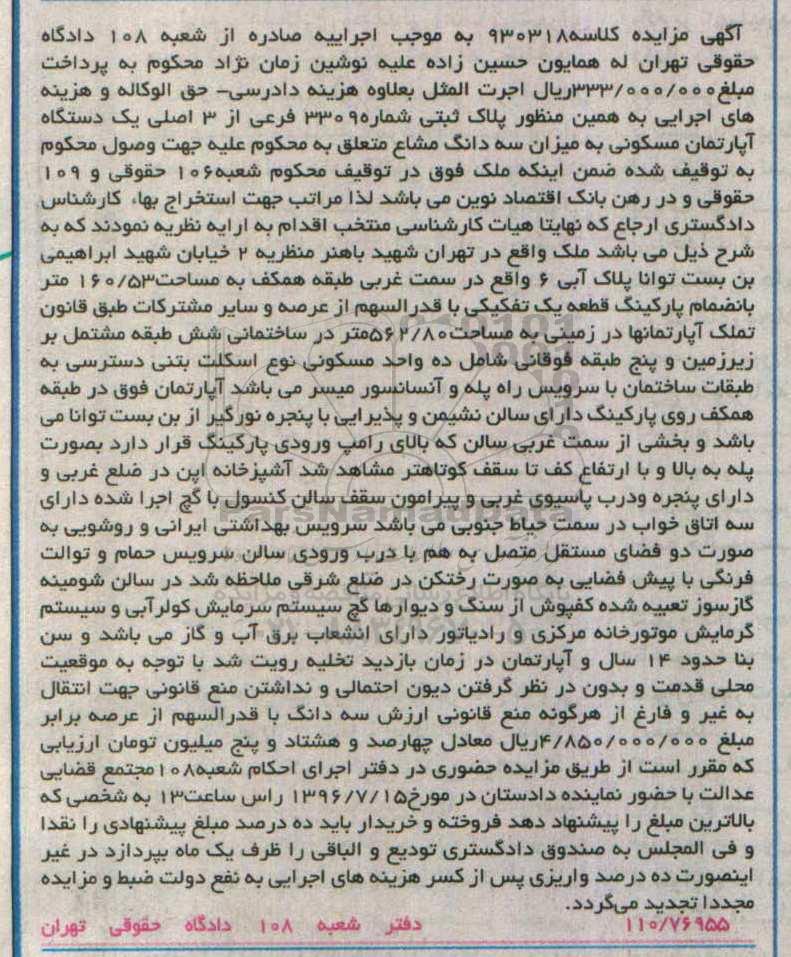 آگهی مزایده کلاسه۹۳۰۳۱۸ به موجب اجراییه صادره از شعبه ۱۰۸ دادگاه
حقوقی تهران له همایون حسین زاده علیه نوشین زمان نژاد محکوم به پرداخت
مبلغ۳۳۳/۰۰۰/۰۰۰ریال اجرت المثل بعلاوه هزینه دادرسی- حق الوکاله و هزینه
های اجرایی به همین منظور پلاک ثبتی شماره۳۳۰۹ فرعی از ۳ اصلی یک دستگاه
آپارتمان مسکونی به میزان سه دانگ مشاع متعلق به محکوم علیه جهت وصول محکوم
به توقیف شده ضمن اینکه ملک فوق در توقیف محکوم شعبه۱۰۶ حقوقی و ۱۰۹
حقوقی و در رهن بانک اقتصاد نوین می باشد لذا مراتب جهت استخراج بها، کارشناس
دادگستری ارجاع که نهایتا هیات کارشناسی منتخب اقدام به ارایه نظریه نمودند که به
شرح ذیل می باشد ملک واقع در تهران شهید باهنر منظریه ۲ خیابان شهید ابراهیمی
بن بست توانا پلاک آبی ۶ واقع در سمت غربی طبقه همکف به مساحت۱۶۰/۵۳ متر
بانضمام پارکینگ قطعه یک تفکیکی با قدرالسهم از عرصه و سایر مشترکات طبق قانون
تملک آپارتمانها در زمینی به مساحت۵۶۲/۸۰متر در ساختمانی شش طبقه مشتمل بر
زیرزمین و پنج طبقه فوقانی شامل ده واحد مسکونی نوع اسکلت بتنی دسترسی به
طبقات ساختمان با سرویس راه پله و آنسانسور میسر می باشد آپارتمان فوق در طبقه
همکف روی پارکینگ دارای سالن نشیمن و پذیرایی با پنجره نورگیر از بن بست توانا می
باشد و بخشی از سمت غربی سالن که بالای رامپ ورودی پارکینگ قرار دارد بصورت
پله به بالا و با ارتفاع کف تا سقف کوتاهتر مشاهد شد آشپزخانه اپن در ضلع غربی و
دارای پنجره ودرب پاسیوی غربی و پیرامون سقف سالن کنسول با گچ اجرا شده دارای
سه اتاق خواب در سمت حیاط جنوبی می باشد سرویس بهداشتی ایرانی و روشویی به
صورت دو فضای مستقل متصل به هم با درب ورودی سالن سرویس حمام و توالت
فرنگی با پیش فضایی به صورت رختکن در ضلع شرقی ملاحظه شد در سالن شومینه
گازسوز تعبیه شده کفپوش از سنگ و دیوارها گچ سیستم سرمایش کولرآبی و سیستم
گرمایش موتورخانه مرکزی و رادیاتور دارای انشعاب برق آب و گاز می باشد و سن
بنا حدود ۱۴ سال و آپارتمان در زمان بازدید تخلیه رویت شد با توجه به موقعیت
محلی قدمت و بدون در نظر گرفتن دیون احتمالی و نداشتن منع قانونی جهت انتقال
به غیر و فارغ از هرگونه منع قانونی ارزش سه دانگ با قدرالسهم از عرصه برابر
مبلغ ۴/۸۵۰/۰۰۰/۰۰۰ریال معادل چهارصد و هشتاد و پنج میلیون تومان ارزیابی
که مقرر است از طریق مزایده حضوری در دفتر اجرای احکام شعبه۱۰۸مجتمع قضایی
عدالت با حضور نماینده دادستان در مورخ۱۳۹۶/۷/۱۵ راس ساعت۱۳ به شخصی که
بالاترین مبلغ را پیشنهاد دهد فروخته و خریدار باید ده درصد مبلغ پیشنهادی را نقدا
و فی المجلس به صندوق دادگستری تودیع و الباقی را ظرف یک ماه بپردازد در غیر
اینصورت ده درصد واریزی پس از کسر هزینه های اجرایی به نفع دولت ضبط و مزایده
مجددا تجدید می‌گردد.
۱۱۰/۷۶۹۵۵ دفتر شعبه ۱۰۸ دادگاه حقوقی تهران
ParsNamadData